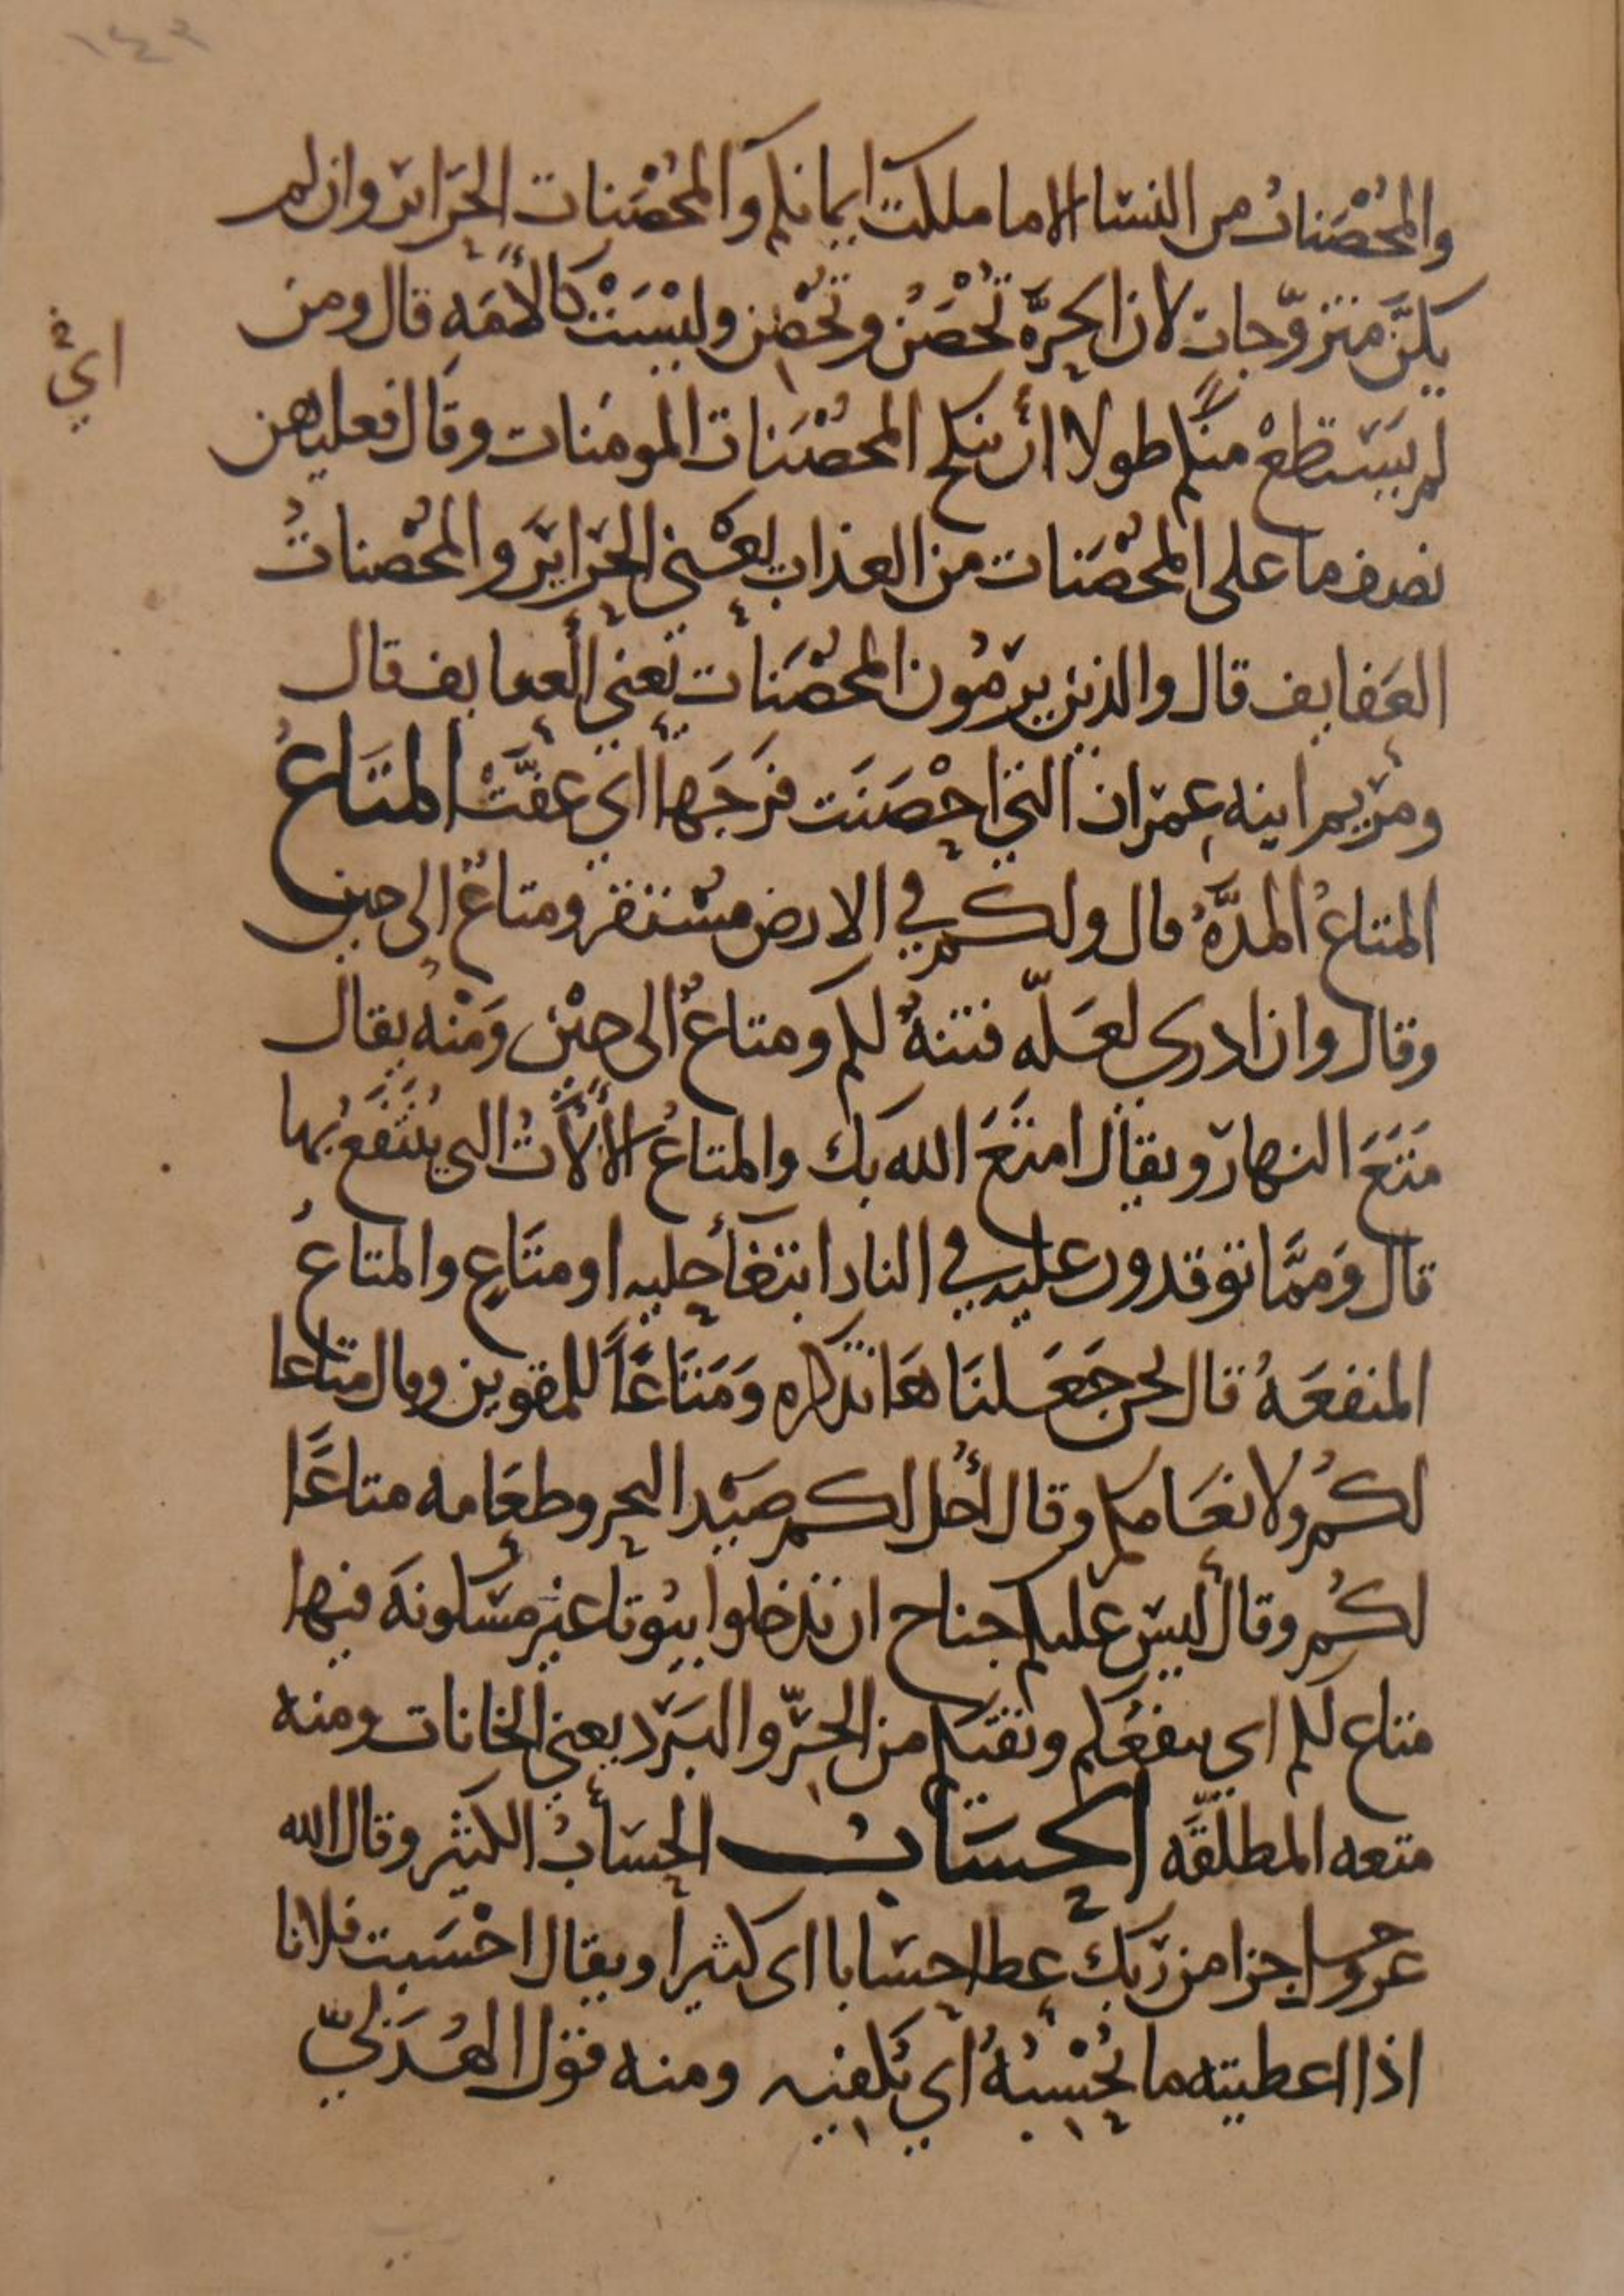 ١٤٢
والمُحْصَناتُ من النسا الا ما ملكت ايمانكم والمُحْصَنات الحَرائر وان لم
يكنّ متزوّجات لان الحرَّه تُحْصَن وتُحْصِن وليْسَتْ كالأَمَه قال ومن
لم يَسْتطعْ منكم طولا أن ينكح المُحصَنات المومنات وقال فعليهن
نصف ما على المُحْصَنات من العذاب يعني الحَراير والمُحْصناتُ
العَفايف قال والذين يرمُون المُحْصَنات يعني العفايف قال
ومريم ابنه عمران التي احْصَنَت فرجَها اي عفَّتْ المَتَاعُ
المتاعُ المدَّهُ قال ولكم في الارض مُسْتقر ومتاعٌ الى حين
وقال وان ادري لعَلّه فتنهٌ لكم ومتاعٌ الى حِيْن ومنْه يقال
مَتَعَ النهار ويقال امتَعَ الله بك والمتاعُ الألَاتُ التي يُنْتَفَعُ بها
قال وَممَّا توقدون عليه في النار ابتغأ حليه او متَاعٍ والمتاعُ
المنفعَهُ قال نحن جَعَلنَاهَا تذكره وَمَتَاعًا للمقوين وقال متاعا
لكُم ولانعَامكم وقال أُحل لكم صَيْد البحر وطعَامه متاعًا
لكُم وقال ليس عليكم جناح ان تدخلوا بيُوتا غير مسكونهَ فيها
متاع لكم اى ينفعُكم ويقيكم من الحرّ والبَرْد يعني الخانات ومنه
متعه المطلّقَه الحسَابُ الحِسَابُ الكثير وقال الله
عز وجل جزا من ربك عطا حسَابا اى كثيرا ويقال احْسَبت فلانا
اذا اعطيته ما يُحْسِبُهُ أي يَكفيه ومنه قول الهُذَليّ
اي